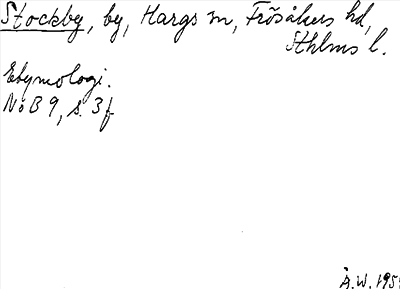 Stockby, by, Hargs sn, Frösåkers hd,
Sthlms l.
Etymologi.
NoB 9, s. 3 f
Å.W. 195